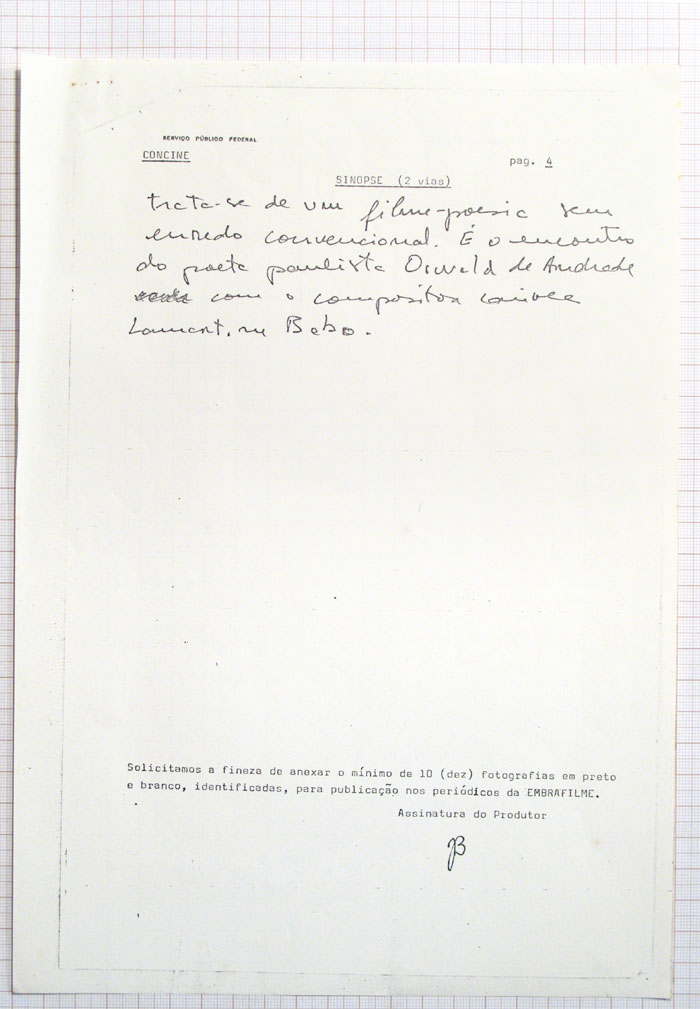 SERVIÇO PÚBLICO FEDERAL
CONCINE
pag. 4
SINOPSE (2 vias)
trata-se de um filme-poesia sem
enredo convencional. É o encontro
do poeta paulista Oswald de Andrade
com o compositor carioca
Lamartine Babo.
Solicitamos a fineza de anexar o mínimo de 10 (dez) fotografias em preto
e branco, identificadas, para publicação nos periódicos da EMBRAFILME.
Assinatura do Produtor
JB